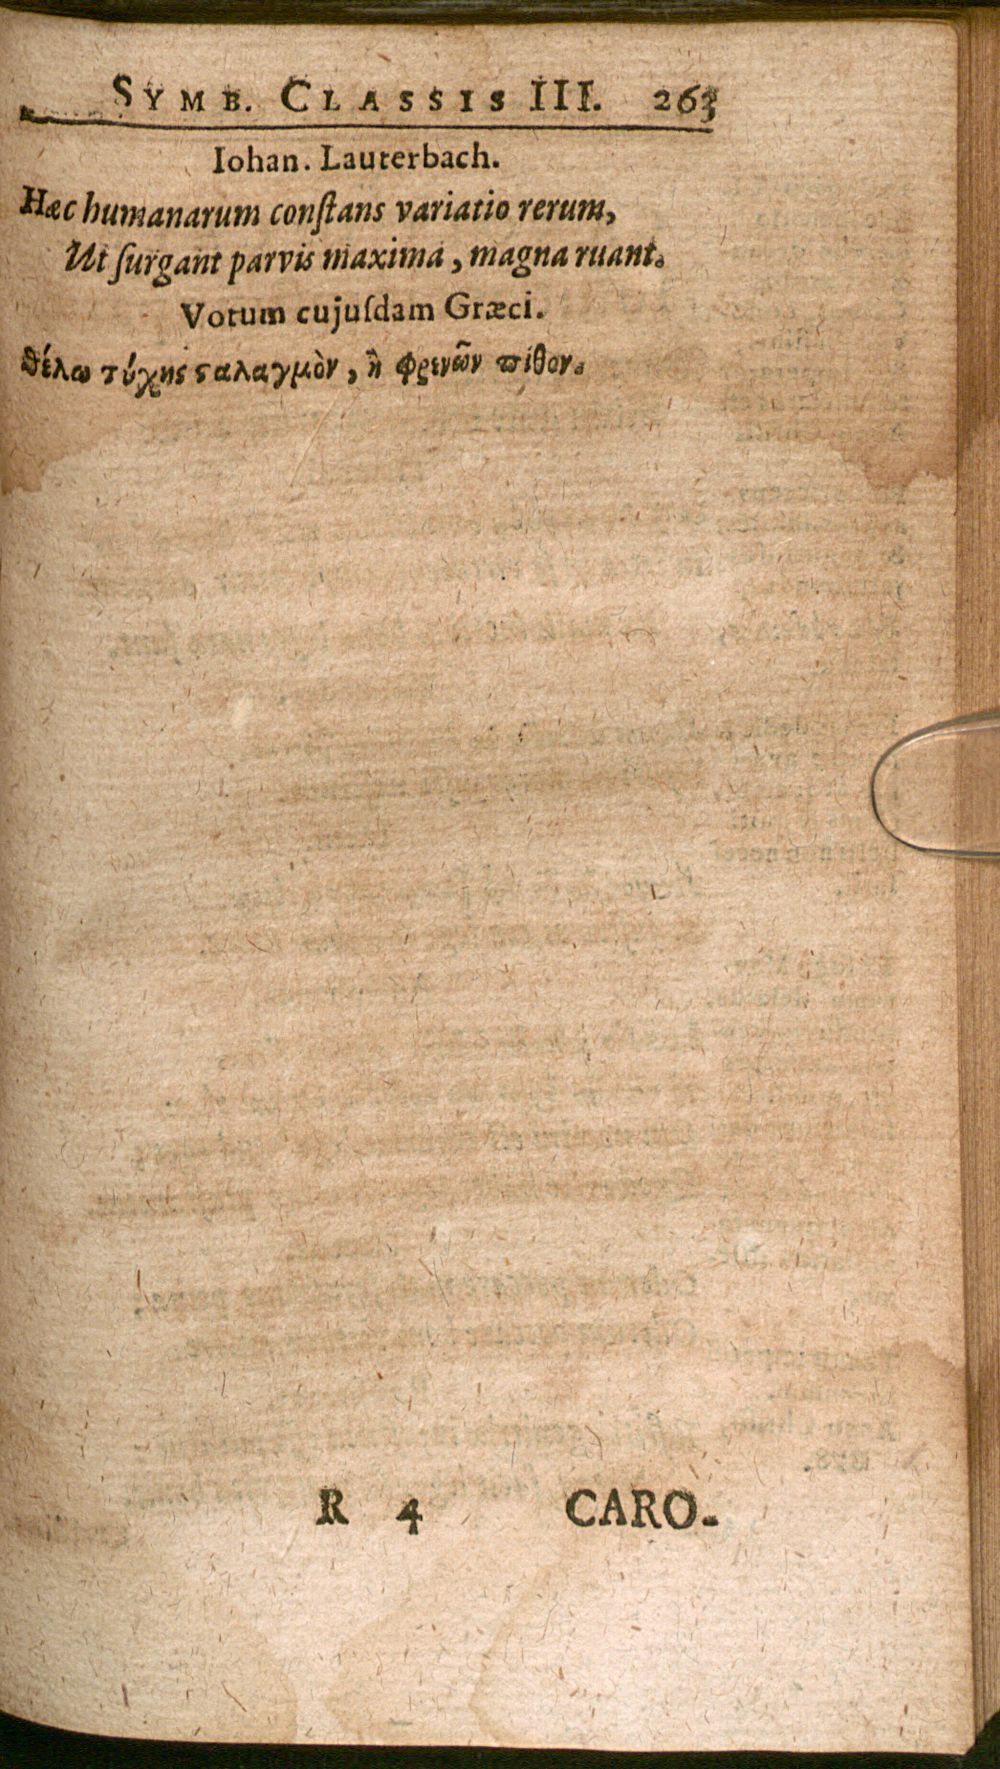 SYMB. CLASSIS III. 263
Iohan. Lauterbach.
Hæc humanarum conſtans variatio rerum,
Ut ſurgant parvis maxima, magna ruant.
Votum cujuſdam Græci.
Θέλω τύχης ϛαλαγμὸν, ἢ φρενῶν πίθον.
R 4 CARO-